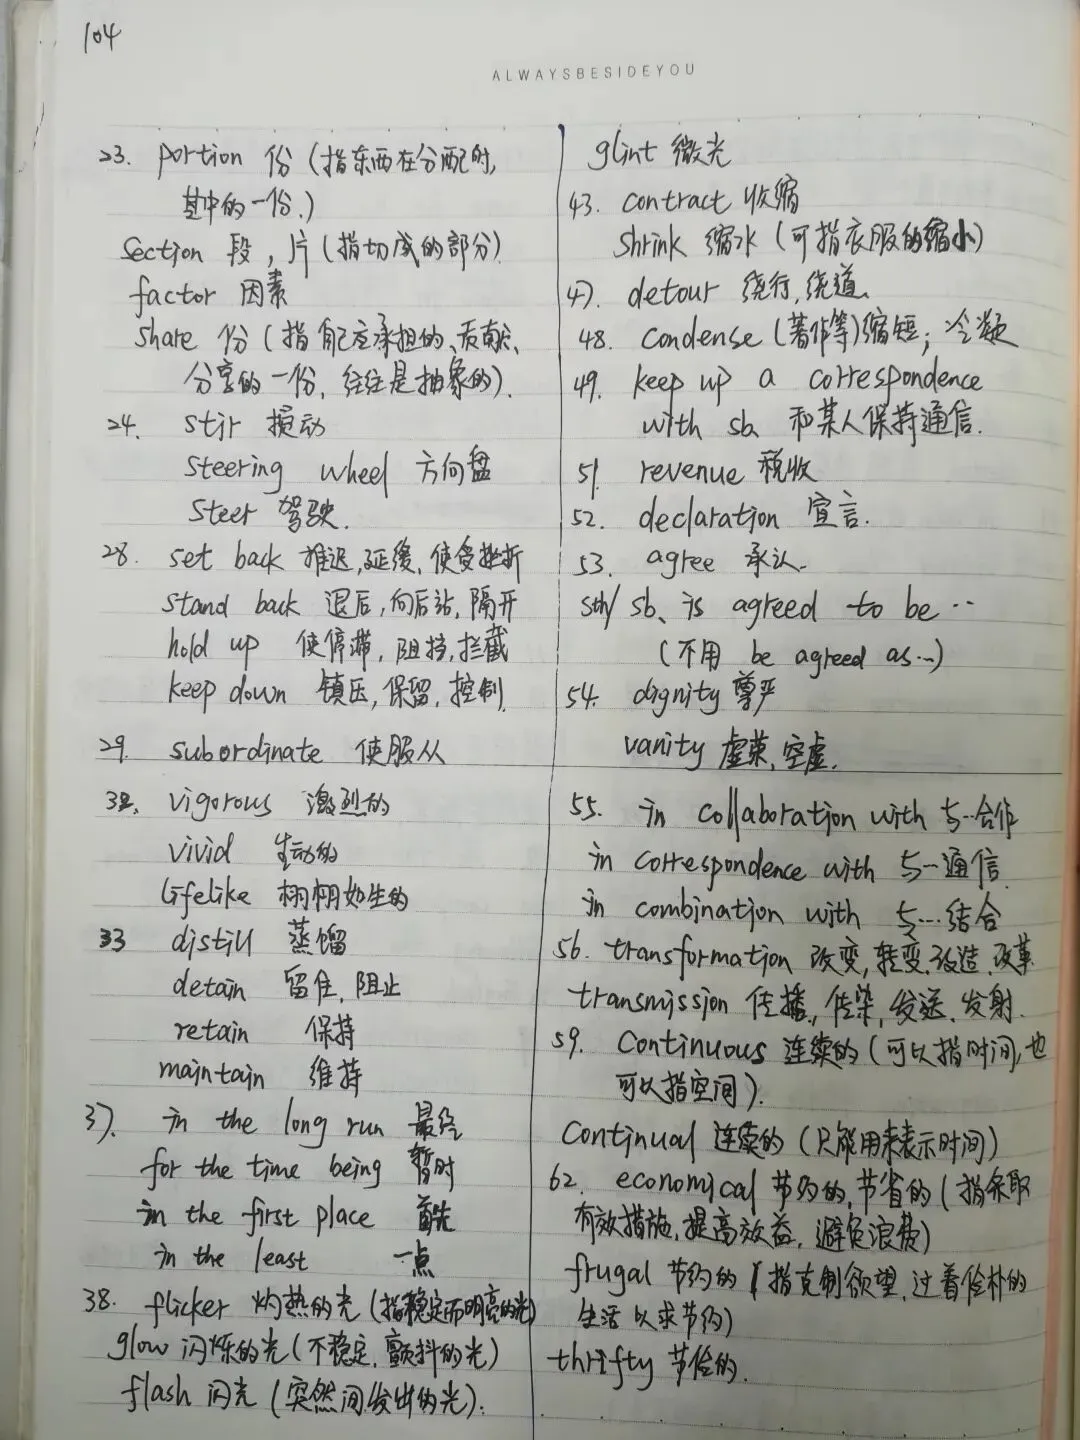 104
ALWAYSBESIDEYOU
23. portion 份（指东西在分配时,
其中的一份.）
section 段，片（指切成的部分）
factor 因素
share 份（指自己应承担的、贡献、
分享的一份，往往是抽象的）.
24. stir 搅动
steering wheel 方向盘
steer 驾驶.
28. set back 推迟,延缓,使受挫折
stand back 退后,向后站,隔开
hold up 使停滞,阻挡,拦截
keep down 镇压,保留,控制.
29. subordinate 使服从
32. vigorous 激烈的
vivid 生动的
lifelike 栩栩如生的
33 distill 蒸馏
detain 留住,阻止
retain 保持
maintain 维持
37. in the long run 最终
for the time being 暂时
in the first place 首先
in the least 一点
38. flicker 灼热的光（指稳定而明亮的光）
glow 闪烁的光（不稳定,颤抖的光）
flash 闪光（突然间发出的光）.
glint 微光
43. contract 收缩
shrink 缩水（可指衣服的缩小）
47. detour 绕行,绕道.
48. condense（著作等)缩短；冷凝
49. keep up a correspondence
with sb. 和某人保持通信.
51. revenue 税收
52. declaration 宣言.
53. agree 承认.
sth/sb. is agreed to be…
（不用 be agreed as…）
54. dignity 尊严
vanity 虚荣,空虚.
55. in collaboration with 与…合作
in correspondence with 与…通信
in combination with 与…结合
56. transformation 改变,转变.改造.改革
transmission 传播,传染,发送.发射.
59. continuous 连续的（可以指时间,也
可以指空间）.
continual 连续的（只能用来表示时间）
62. economical 节约的,节省的（指采取
有效措施,提高效益,避免浪费）
frugal 节约的（指克制欲望,过着俭朴的
生活以求节约）
thrifty 节俭的.